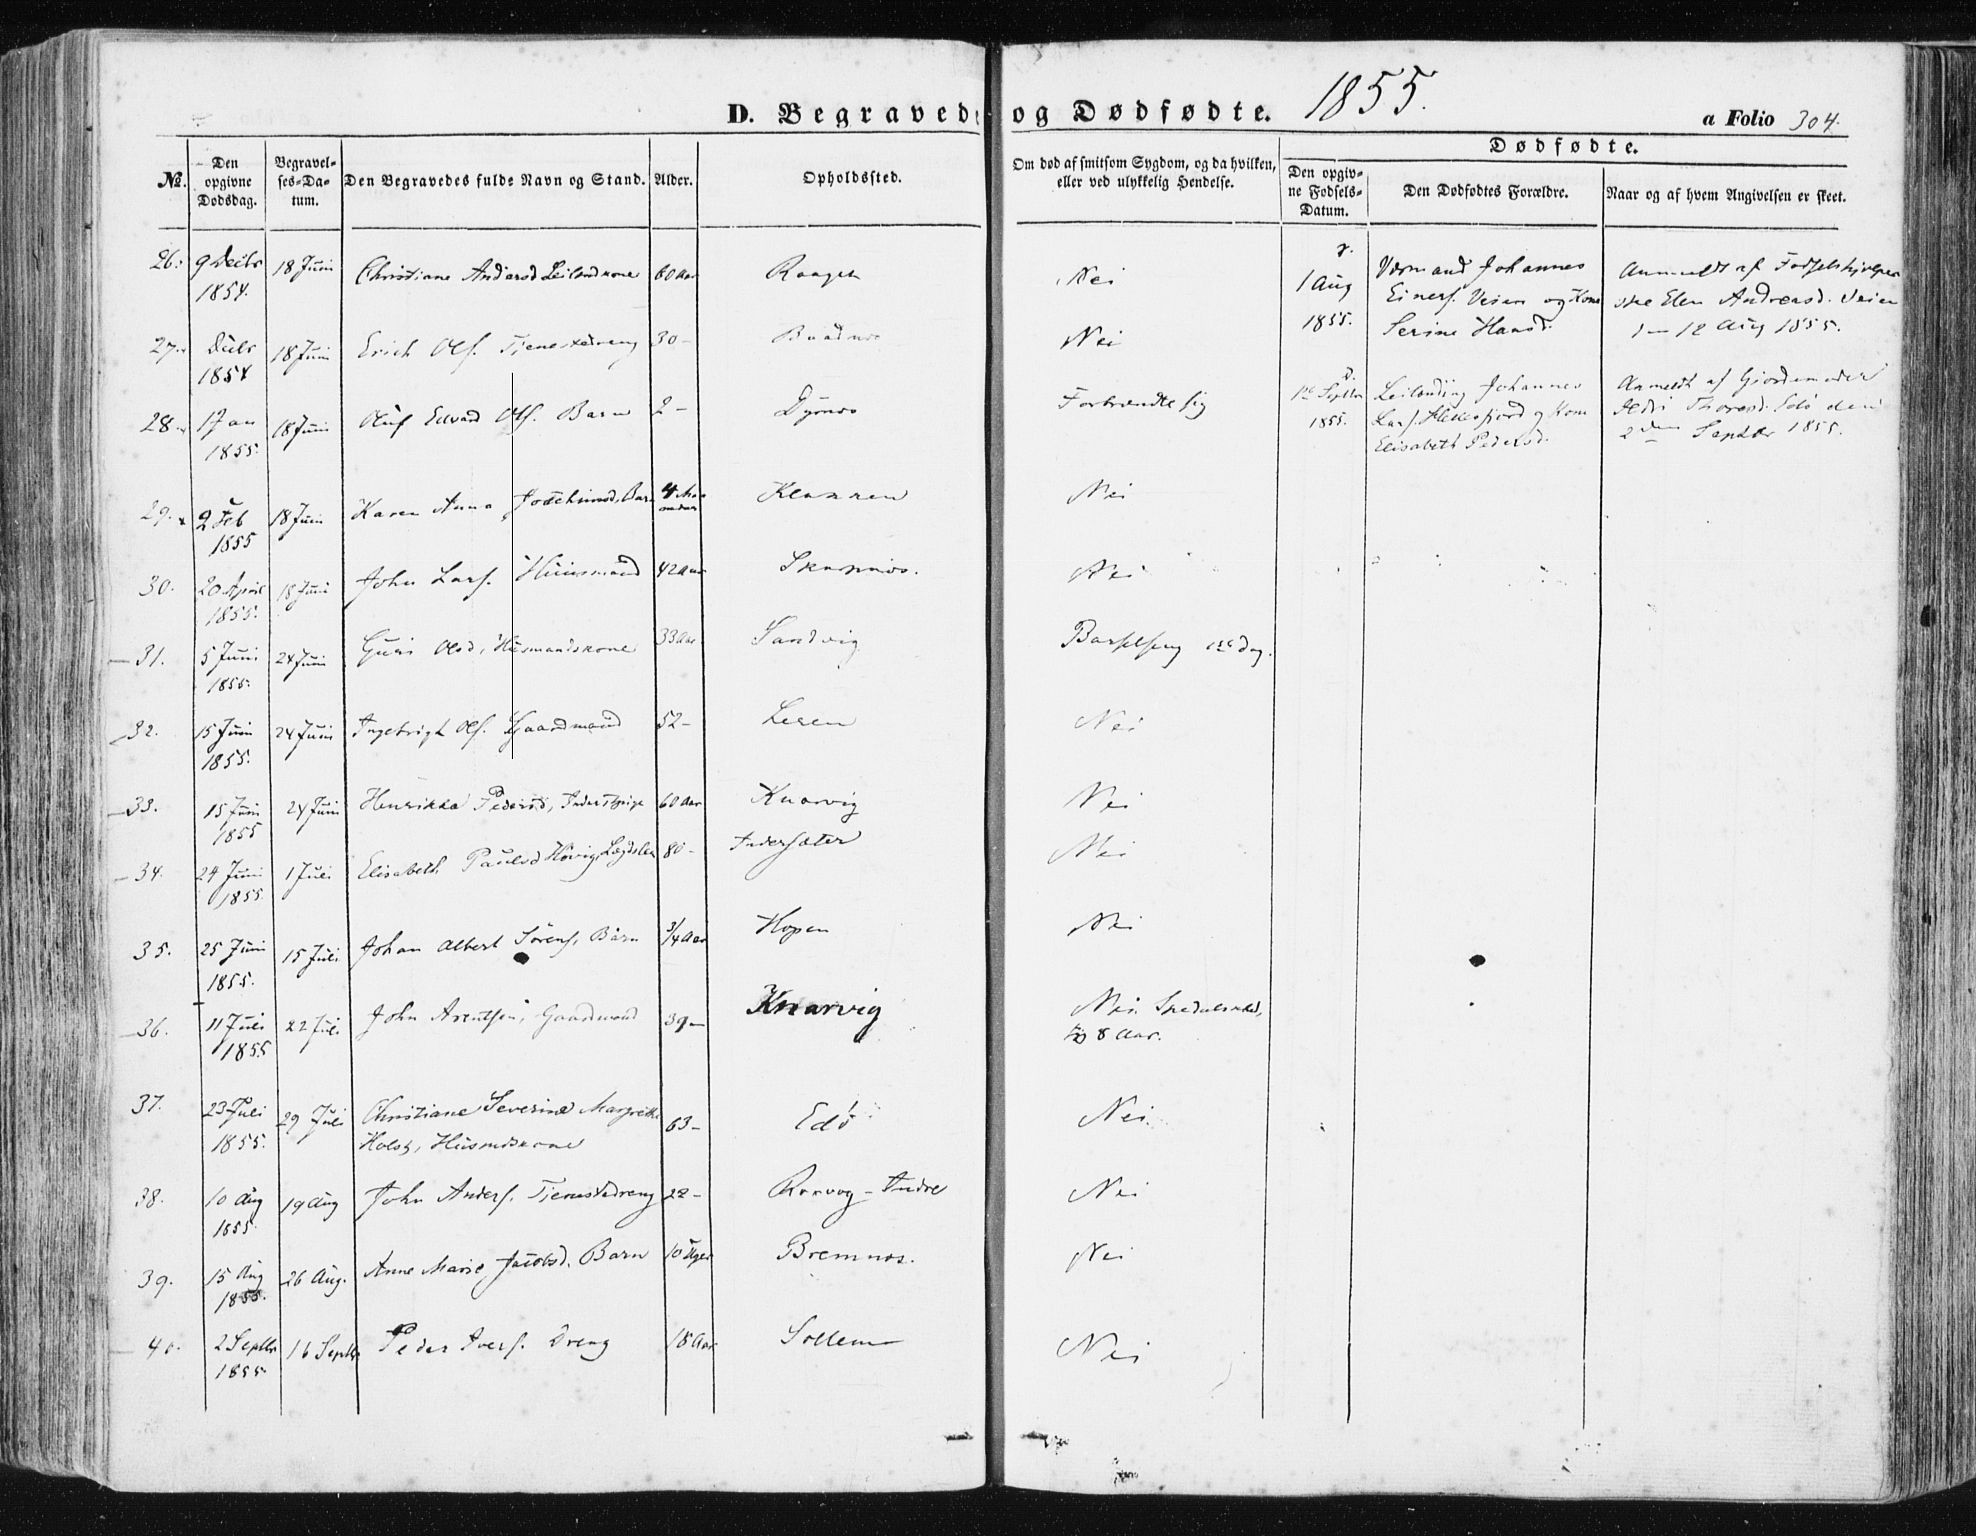 D. Begravede og Dødfødte. 1855.
a Folio 304.
Dødfødte.
No.
Den opgivne Dødsdag.
Begravelses-Datum.
Den Begravedes fulde Navn og Stand.
Alder.
Opholdssted.
Om død af smitsom Sygdom, og da hvilken, eller ved ulykkelig Hendelse.
Den opgivne Fødsels-Datum.
Den Dødfødtes Forældre.
Naar og af hvem Angivelsen er skeet.
26. 9 Decbr 1854. 18 Juni Christiane Andersd Leilendkone 60 Aar Nei
27. Decbr 1854 18 Juni Erich Ols. Tjenestedreng 30 - Nei
28. 1 Jan 1855. 18 Juni Oluf Edvard Ols. Barn 2 - Dyrnes Forbrændte sig
29. 2 Feb 1855 18 Juni Karen Anna Jochimsd, Barn 4 Maaneder Klakken Nei
30. 20 April 1855. 18 Juni John Lars. Huusmand 42 Aar Skarpnes. Nei
31. 5 Juni 1855. 24 Juni Guri Olsd, Husmandskone 33 Aar Sandvig Barselseng dag.
32. 15 Juni 1855. 24 Juni Ingebrigt Ols. Gaardmand 52 - Leren Nei
33. 15 Juni 1855 24 Juni Henrikka Pedersd, 60 Aar Knarvig Nei
34. 24 Juni 1855. 1 Juli Elisabeth Paulsd Høvig, Lægdslem 80 - Indersæter Nei
35. 25 Juni 1855. 15 Juli Johan Albert Sørens, Barn 3/4 Aar Hopen Nei
36. 11 Juli 1855 22 Juli John Arentsen, Gaardmand 39 - Knarvig Nei. Spedalskhed,
8 Aar.
37. 23 Juli 1855. 29 Juli Christiane Severine Margrethe
Holst, Husmdskone 63 - Edø Nei
38. 10 Aug 1855. 19 Aug John Anders. Tjenestedreng 22 - Indre Nei
39. 15 Aug 1855. 26 Aug. Anne Marie Jacobsd. Barn 10 Uger Bremnes. Nei
40. 2 Septbr 1855 16 Septbr Peder Ivers. Dreng 18 Aar Sollem Nei
1 Aug 1855.
Johannes
Einers. Veien og Kone
Serine Hansd.
Anmeldt af Fødselshjelper
ske Elen Andreasd. Veien
12 Aug 1855.
Septbr 1855.
Leilending Johannes
Lars. og Kone
Elisabeth Pedersd.
Anmeldt af Gjordemoder
Thoresd. Edø den
2den Septbr 1855.